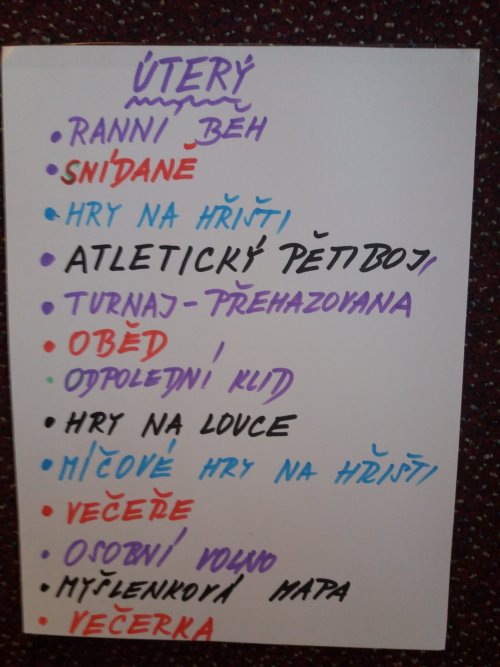 ÚTERÝ
• RANNÍ BĚH
• SNÍDANĚ
• HRY NA HŘIŠTI
• ATLETICKÝ PĚTIBOJ
• TURNAJ - PŘEHAZOVANA
• OBĚD
• ODPOLEDNÍ KLID
• HRY NA LOUCE
• MÍČOVÉ HRY NA HŘIŠTI
• VEČEŘE
• OSOBNÍ VOLNO
• MYŠLENKOVÁ MAPA
• VEČERKA